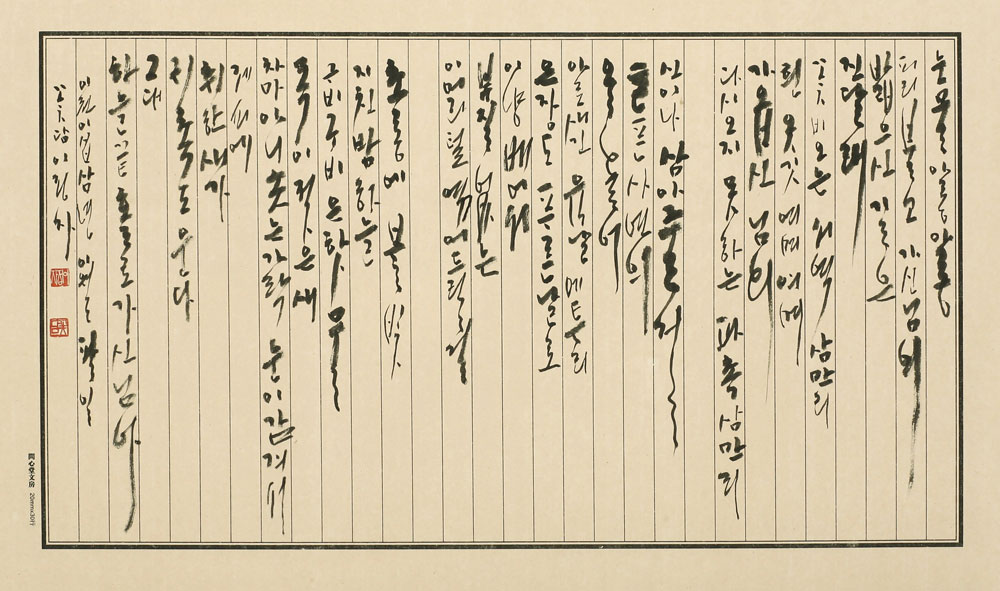 눈물 아롱 아롱
피리 불고 가신 님의
밟으신 길은
진달래
꽃비 오는 서역 삼만리
흰 옷깃 여며 여며
가옵신 님의
다시오지 못하는 파촉 삼만리
신이나 삼아줄걸
슬픈 사연의
올올이
아로새긴 육날 메투리
은장도 푸른 날로
이냥 베어서
부질없는
이머리털 엮어 드릴걸
초롱에 불빛
지친 밤하늘
구비구비 은핫물
목이 젖은 새
차마 아니 솟는 가락 눈이 감겨서
제 피에
취한 새가
귀촉도 운다
그대
하늘 끝 호올로 가신 님아
이천이십삼년 이월 팔일
꽃담
問心堂文房 20mmx30行